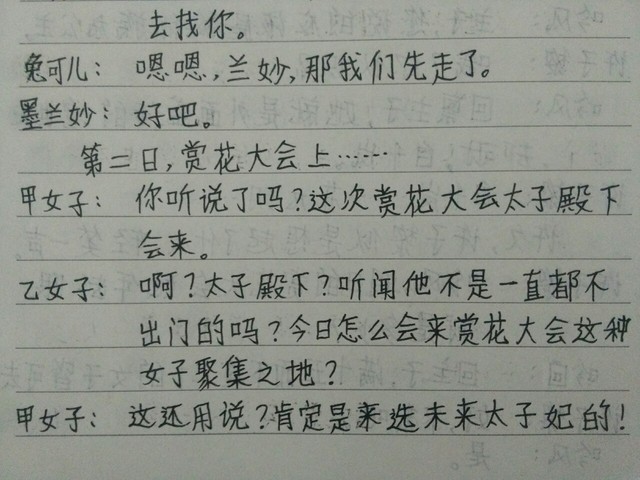 去找你。
兔可儿：嗯嗯,兰妙,那我们先走了。
墨兰妙：好吧。
第二日,赏花大会上……
甲女子：你听说了吗？这次赏花大会太子殿下
会来。
乙女子：啊？太子殿下？听闻他不是一直都不
出门的吗？今日怎么会来赏花大会这种
女子聚集之地？
甲女子：这还用说？肯定是来选未来太子妃的！